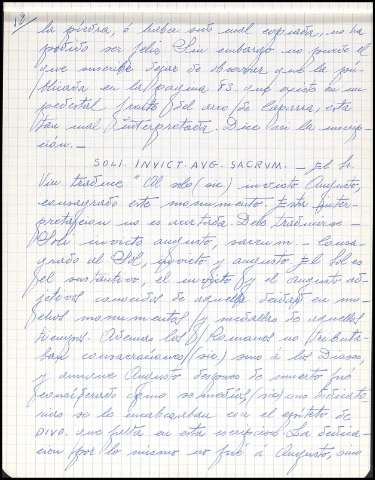 la piedra, ó haber sido mal copiada, no ha
podido ser feliz. Sin embargo no puede el
que suscribe dejar de observar que la pu-
blicada en la página 83, que existe en un
pedestal frente del arco de Caparra, esta
tan mal interpretada. Dice en la inscrip-
ción. —
SOLI. INVICT. AVG. SACRVM. — El Sr.
Viu traduce "Al solo (sic) invicto Augusto,
consagrado este monumento. Esta inter-
pretacion no es acertada. Debe traducirse —
Soli invicto augusto, sacrum. — Consa-
grado al Sol, invicto y augusto. El Sol es
el sustantivo, el invicto y el augusto ad-
jetivos conocidos de aquella deidad en mu-
chos monumentos y medallas de aquellos
tiempos. Ademas los Romanos no tributa-
ban consacraciones (sic) sino á los Dioses,
y aunque Augusto despues de muerto fué
considerado como semidios, (sic) sus dedicato-
rias se le encabezaban con el epíteto de
DIVO. que falta en esta inscripcion. La dedica-
cion por lo mismo no fué á Augusto, sino